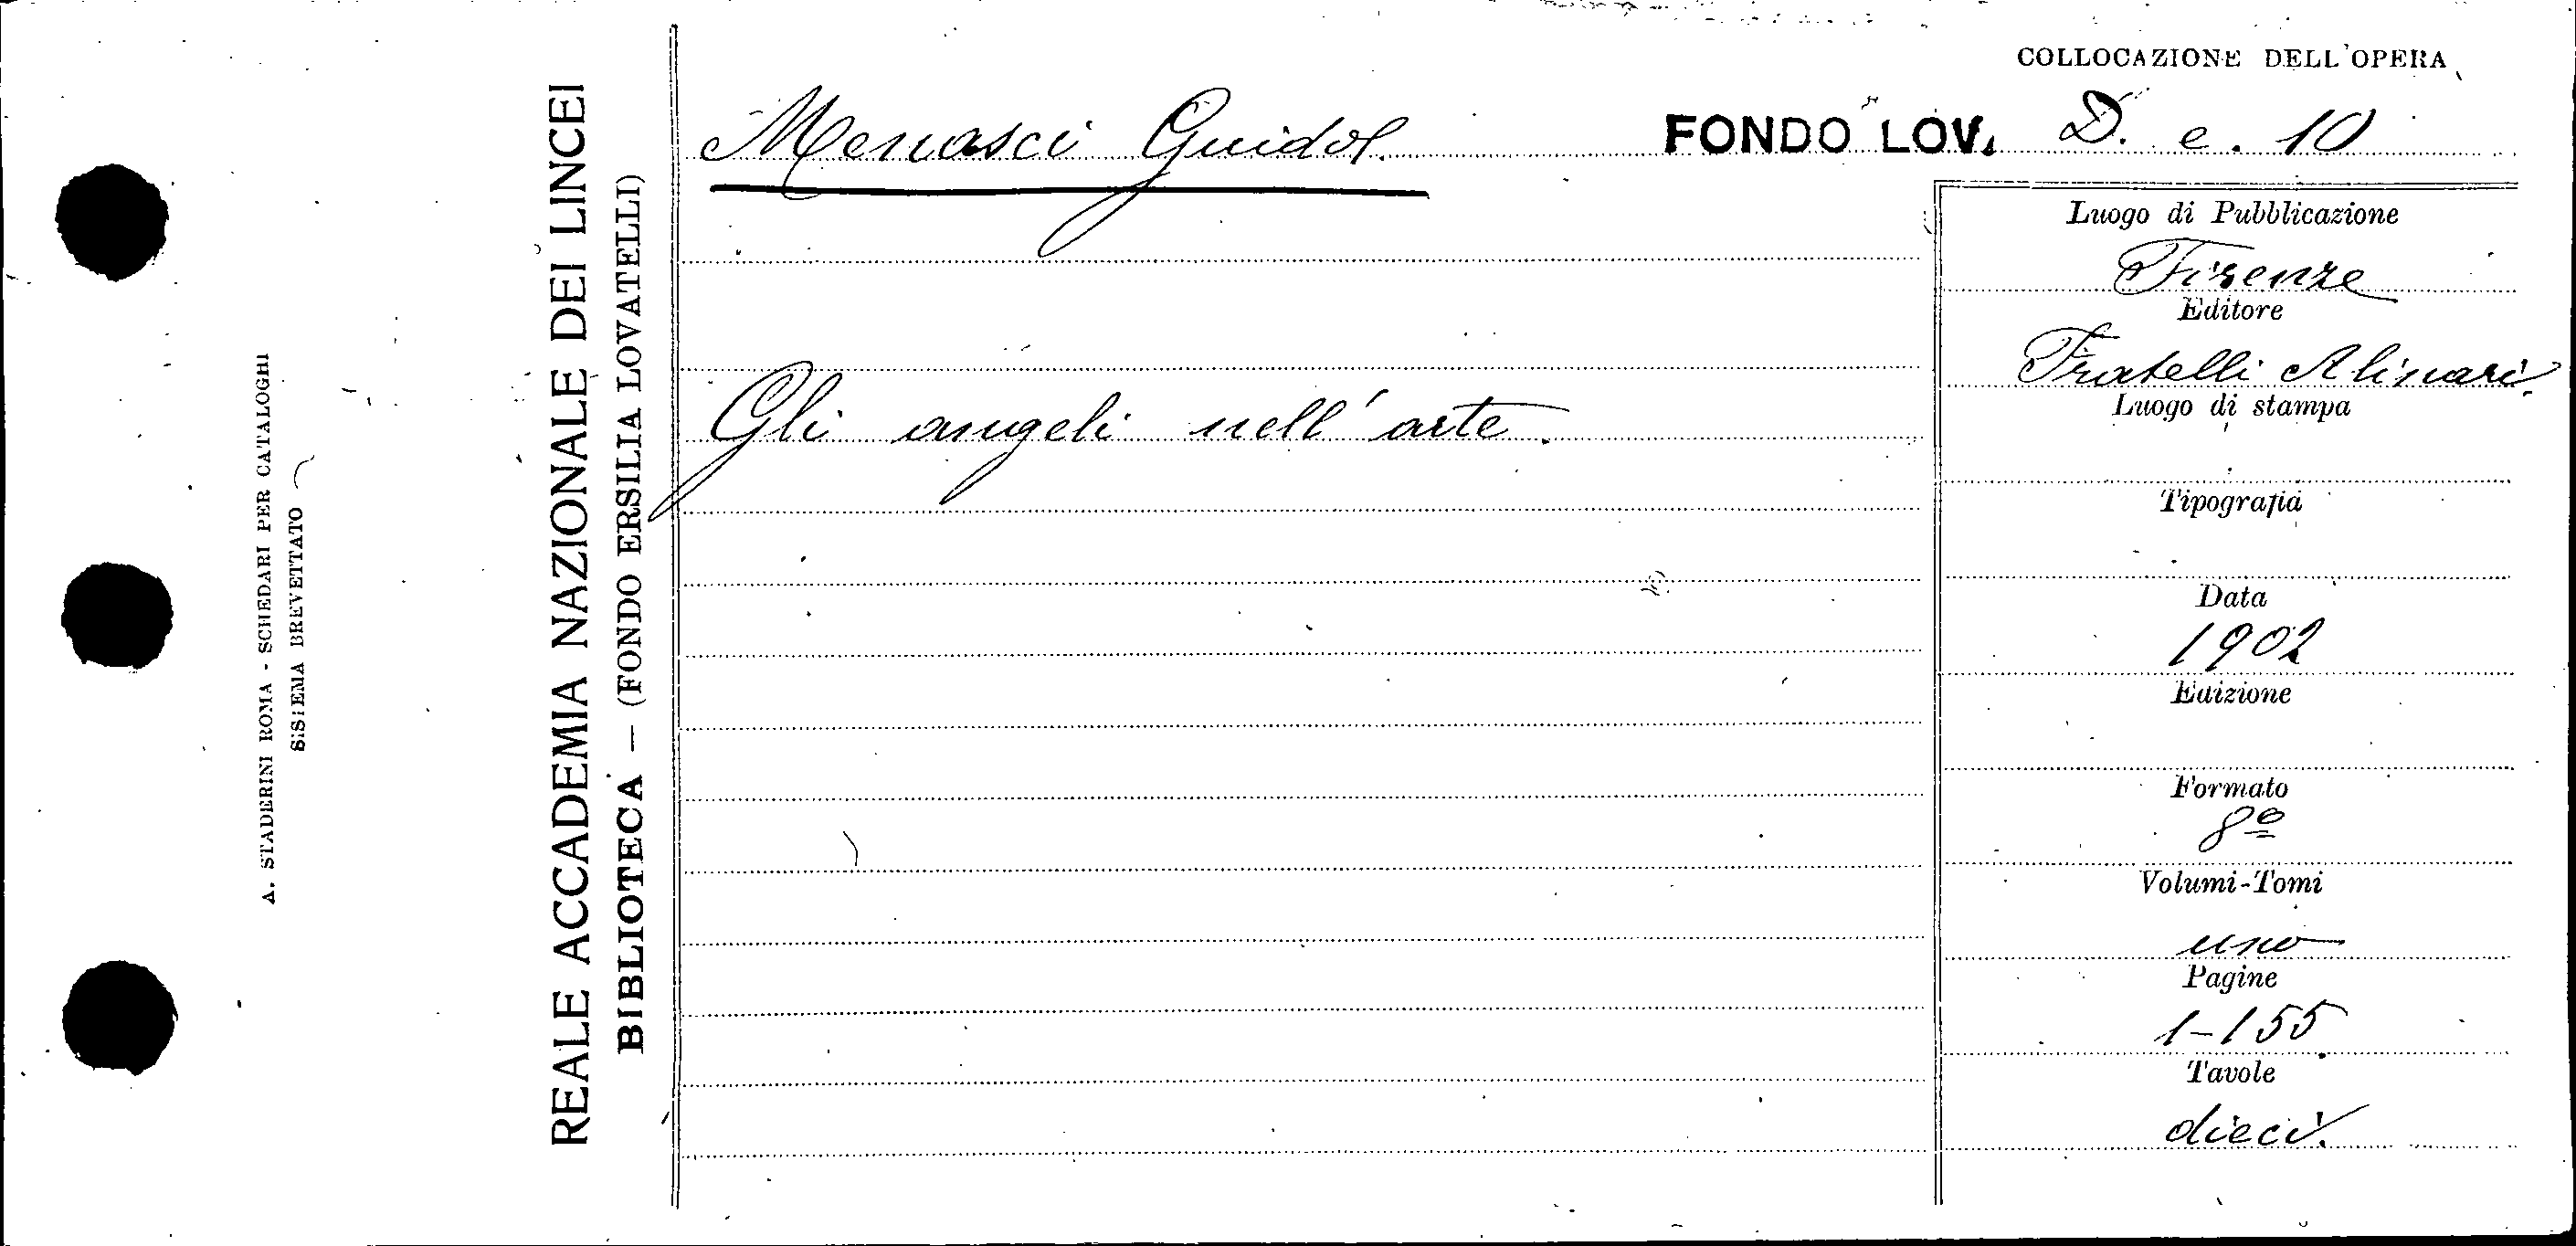 A. STADERINI ROMA - SCHEDARI PER CATALOGHI
SISTEMA BREVETTATO
REALE ACCADEMIA NAZIONALE DEI LINCEI
BIBLIOTECA — (FONDO ERSILIA LOVATELLI)
COLLOCAZIONE DELL'OPERA
Menasci Guido. FONDO LOV. D. e. 10
Gli angeli nell'arte.
Luogo di Pubblicazione
Firenze
Editore
Fratelli Alinari.
Luogo di stampa
Tipografia
Data
1902
Edizione
Formato
8º
Volumi-Tomi
uno
Pagine
1-155
Tavole
dieci.